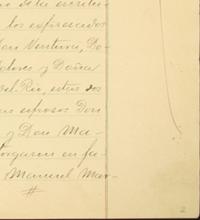 no de la escritu-
los expresados
Don Ventura, Do-
lores y Doña
del Rio, estas dos
sus esposos Don
y Don Ma-
torgaron en fa-
Manuel Mar-
#
2